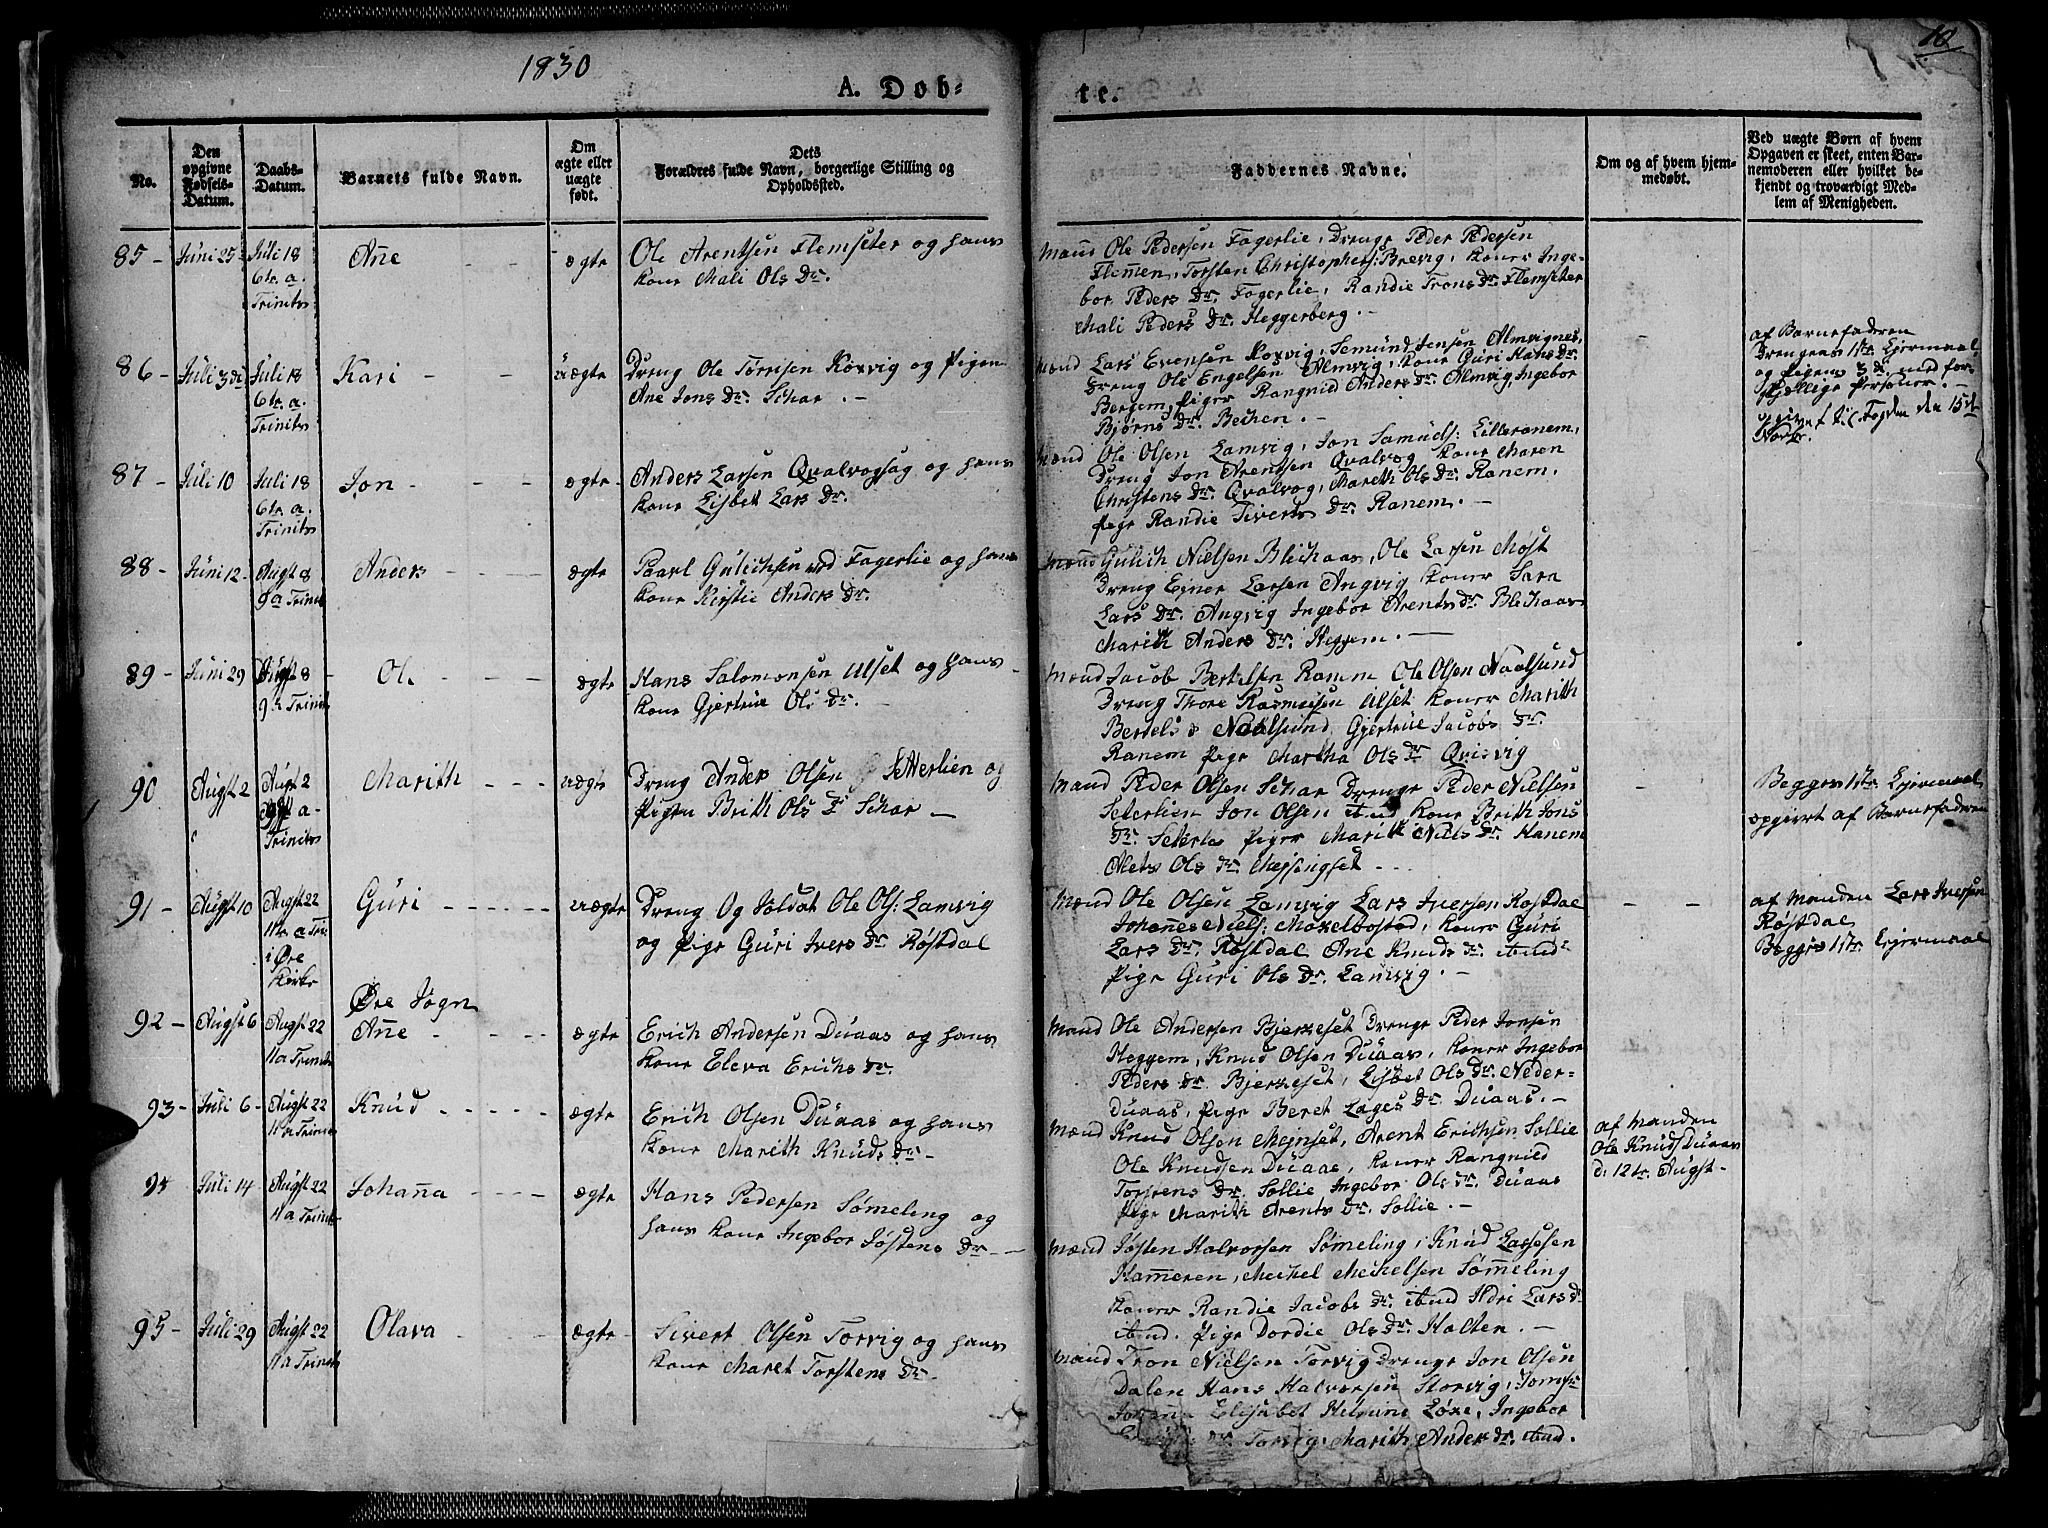 1830
10
A. Døb-
te.
No.
Den opgivne Fødsels-Datum.
Daabs-Datum.
Barnets fulde Navn.
Om ægte eller uægte født.
Dets Forældres fulde Navn, borgerlige Stilling og Opholdssted.
Faddernes Navne.
Om og af hvem hjemmedøbt.
Ved uægte Børn af hvem Opgaven er skeet, enten Barnemoderen eller hvilket bekjendt og troværdigt Medlem af Menigheden.
85 - Juni 25 Juli 18 Añe - - ægte Ole Arentsen Flemseter og hans
6te. a. Trinits kone Mali Ols Dr.
Mænd Ole Pedersen Fagerlie, Drenge Peder Pedersen
Flemen, Torsten Christophers: Brevig, koner Inge-
bor Peders Dr. Fagerlie, Randie Trons Dr. Flemseter
Mali Peders Dr. Heggerberg. -
86 - Juli 3die Juli 18 Kari - - uægte Dreng Ole Torrisen Koxvig og Pigen
6te. a. Trinits Ane Jons Dr. Schar. -
Mænd Lars Evensen Koxvig, Semund Jensen Almvignes,
Dreng Ole Engelsen Almvig, kone Guri Hans Dr.
Bergem, Piger Rangnid Anders Dr. Almvig, Ingebor
Bjørns Dr. Bechen. -
af Barnefaderen
Drengens 1ste Lejermaal
og Pigens 3die med for-
skjellige Personer. -
Fogden den 15de
87 - Juli 10 Juli 18 Jon - - - ægte Anders Larsen Qvalvogsag og hans
6te. a. Trinits kone Lisbet Lars Dr.
Mænd Ole Olsen Lamvig, Jon Samuels: Lilleranem,
Dreng Jon Arentsen Qvalvog kone Maren
Christens Dr. Qvalvog, Mareth Ols Dr. Ranem,
Pige Randie Siverts Dr. Ranem. -
88 - Juni 12 Augst 8 Anders - - - ægte Paarl Gulichsen ved Fagerlie og hans
9 a Trinits kone Kirstie Anders Dr.
Mænd Gulich Nielsen Blichaas, Ole Larsen Most
Dreng Ejner Larsen Angvig koner Sara
Lars Dr. Angvig Ingebor Arents Dr. Blichaas
Marith Anders Dr. Heggem. -
89 - Juni 29 Augst 8 Ole - - - ægte Hans Salomonsen Ulset og hans
9 a Trinits kone Gjertrue Ols Dr. -
Mænd Jacob Bertelsen Ranem Ole Olsen Naalsund
Dreng Thore Rasmussen Ulset koner Marith
Bertels D Naalsund, Gjertrue Jacobs Dr.
Ranem Pige Martha Ols Dr Qvisvig
90 Augst 2 Augst 2 Marith - - - uægte Dreng Anders Olsen Setterlien og
a- Trinits Pigen Brith Ols D Schar -
Mænd Peder Olsen Schar Drenge Peder Nielsen
Seterlien Jon Olsen ibud kone Brith Jons
Dr. Seterlie Piger Marith Niels Dr. Hanem
Mets Ols Dr. Mejsingset -
Begges 1ste Lejermaal
opgivet af Barnefaderen
91 - Augst 10 Augst 22 Guri - - - - - uægte Dreng Og Soldat Ole Ols: Lamvig
11te a Tri: i Øre Kirke og Pige Guri Ivers Dr Røstdal
Mænd Ole Olsen Lamvig Lars Iversen Røstdal
Johannes Niels: Moxelbostad, koner Guri
Lars Dr. Røstdal Ane Knuds Dr. ibud
Pige Guri Ols Dr. Lamvig. -
af Manden Lars Iversen
Røstdal
Begges 1ste Lejermaal
Øre Sogn
92 - Augst 6 Augst 22 Añe - - - ægte Erich Andersen Duaas og hans
11 a Trinits kone Eleva Erichs Dr.
Mænd Ole Andersen Bjerkeset Drenge Peder Jonsen
Heggem, Knud Olsen Duaas, koner Ingebor
Peders Dr. Bjerkeset, Lisbet Ols Dr. Neder-
Duaas, Pige Beret Lages Dr. Duaas. -
93 - Juli 6 - Augst 22 Knud - - - - ægte Erich Olsen Duaas og hans
11 a Trinits kone Marith Knuds Dr
Mænd Knud Olsen Mejnset, Arent Erichsen Sollie
Ole Knudsen Duaas, koner Rangnild
Torstens Dr. Sollie Ingebor Ols Dr. Duaas
Pige Marith Arents Dr. Sollie. -
af Manden
Ole Knuds Duaas
d: 12te Augst -
94 - Juli 14 - Augst 22 Johaña - - - - ægte Hans Pedersen Sømeling og
11 a Trinits hans kone Ingebor Jøstens Dr -
Mænd Jøsten Halvorsen Sømeling, Knud Lassesen
Hameren, Michel Michelsen Sømeling
koner Randie Jacobs Dr. ibud Ildri Lars D
ibud. Pige Dordie Ols Dr. Holten. -
95 - Juli 29 Augst 22 Olava - - - ægte - Sivert Olsen Torvig og hans
11 a Trinits kone Maret Torstens Dr -
Mænd Tron Nielsen Torvig Drenge Jon Olsen
Dalen Hans Halvorsen Storvig,
Elisabet Løxe, Ingebor
Dr. Torvig, Marith Anders Dr. ibud.